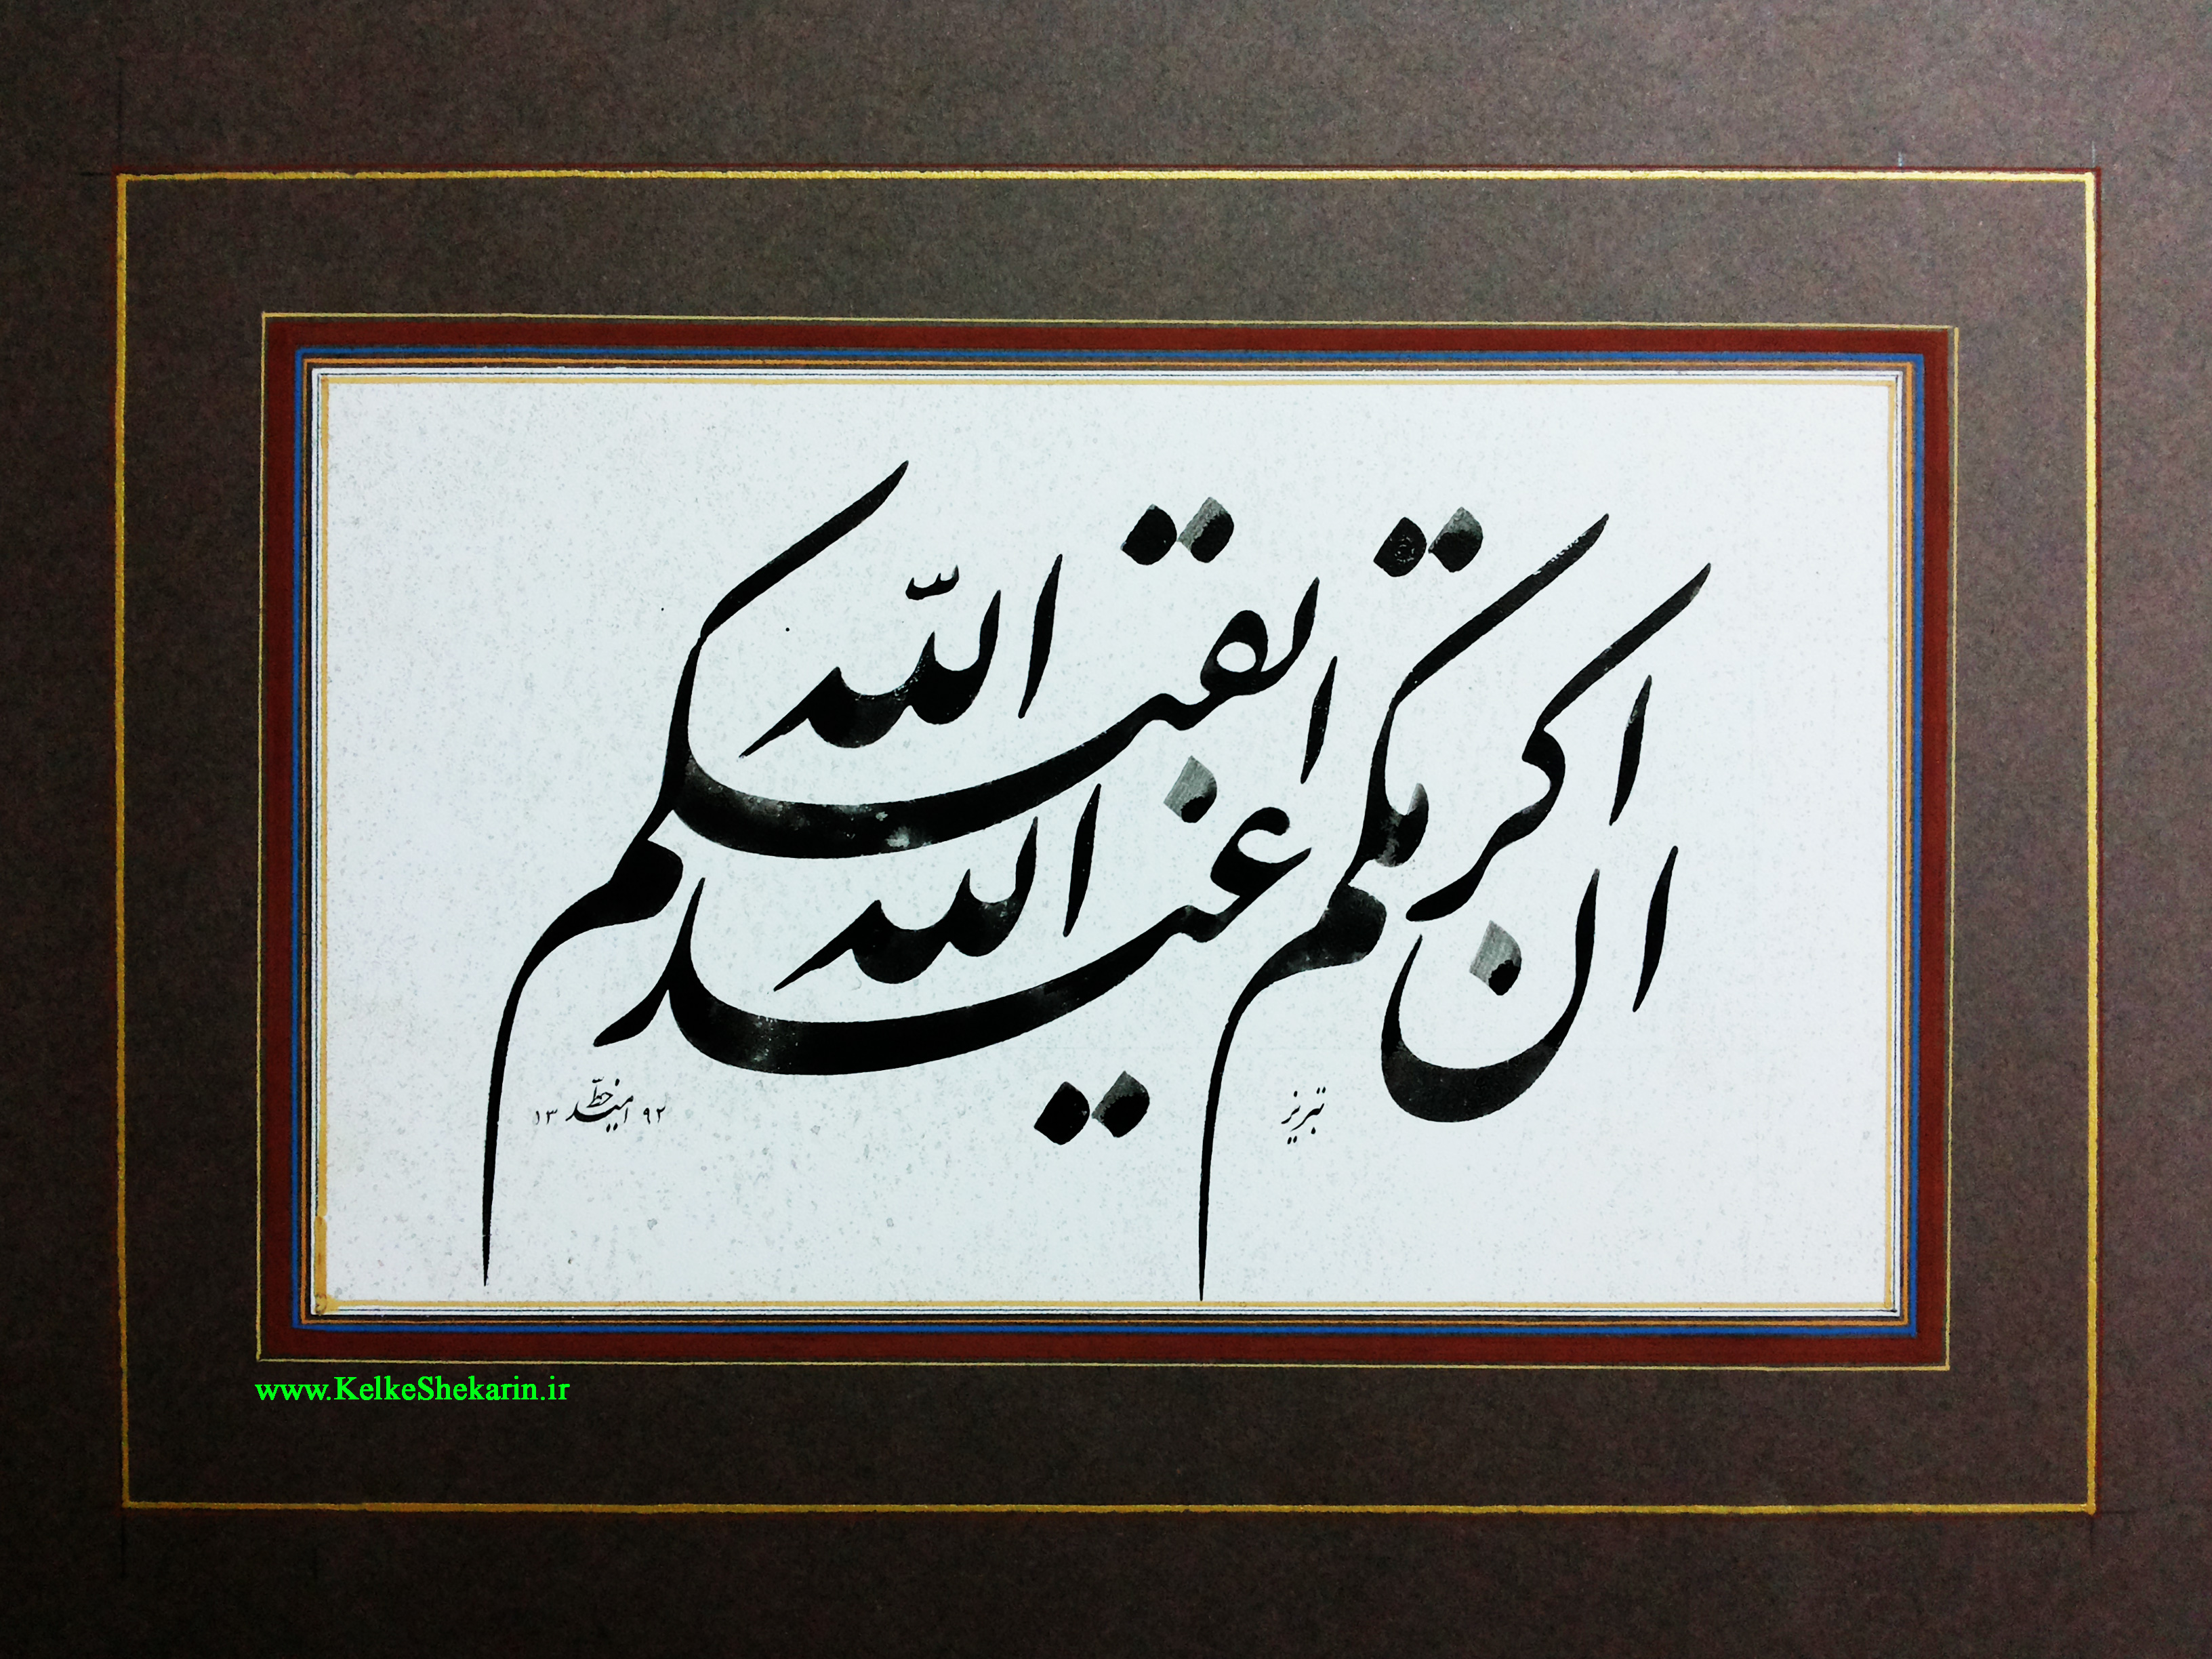 ان اکرمکم عند الله اتقیکم الله
تبریز
خط امید ۱۳۹۲
www.KelkeShekarin.ir